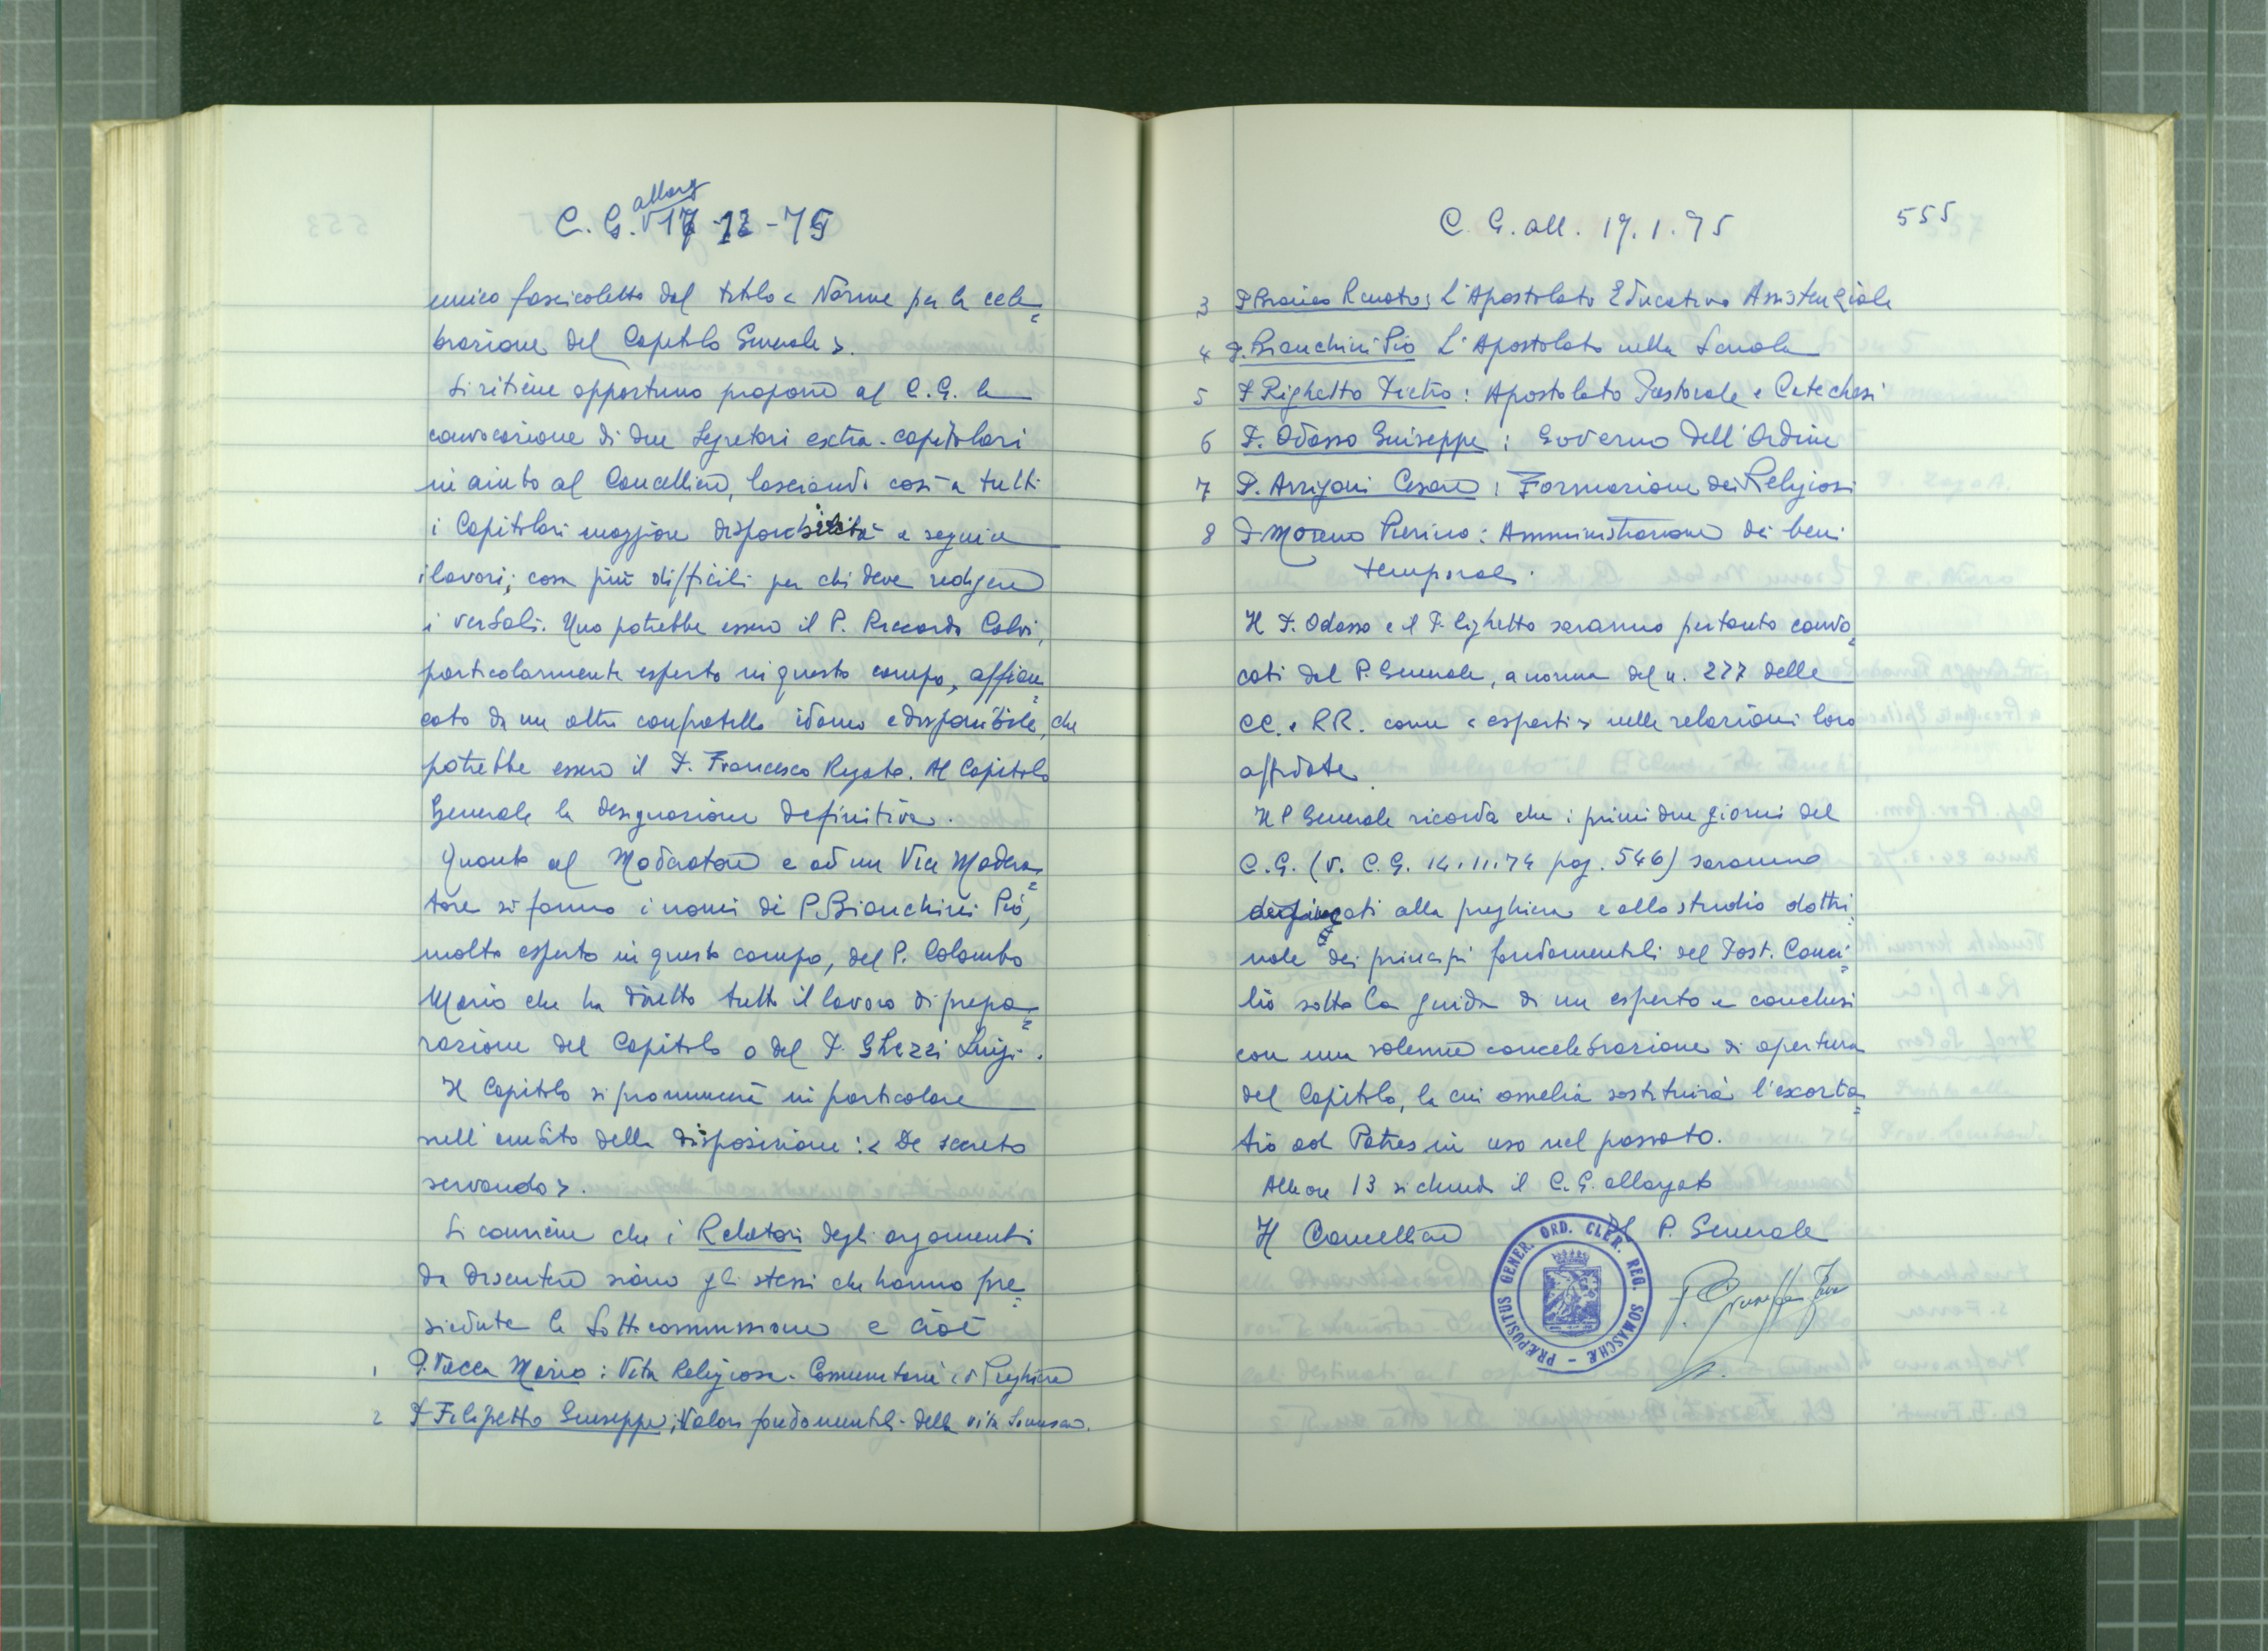 C. G. allarg 17-12-75
unico fascicoletto dal titolo < Norme per la cele=
brazione del Capitolo Generale >.
Si ritiene opportuno proporre al C.G. la
convocazione di due Segretari extra-capitolari
in aiuto al Cancelliere, lasciando così a tutti
i Capitolari maggiore disponibilità a seguire
i lavori; cosa più difficile per chi deve redigere
i verbali. Uno potrebbe essere il P. Riccardo Calvi,
particolarmente esperto in questo campo, affian=
cato da un altro confratello idoneo e disponibile, che
potrebbe essere il P. Francesco. Al Capitolo
Generale la designazione definitiva.
Quanto al Moderatore e ad un Vice Modera=
tore si fanno i nomi di P. Bianchini Pio,
molto esperto in questo campo, del P. Colombo
Mario che ha diretto tutto il lavoro di prepa=
razione del Capitolo o del P. Ghezzi Luigi.
Il Capitolo si pronuncerà in particolare
nell'ambito della disposizione: < De secreto
servando >.
Si conviene che i Relatori degli argomenti
da discutere siano gli stessi che hanno pre=
sieduto le Sottocommissioni e cioè
1 P. Vacca Mario: Vita Religiosa - Comunitaria Preghiera
2 P. Filippetto Giuseppe; Valori fondamentali della vita Somasca.
C. G. all. 17.1.75
555
3 P. Bianco Renato: L'Apostolato Educativo Assistenziale
4 P. Bianchini Pio L'Apostolato nella Scuola
5 P. Righetto Pietro: Apostolato Pastorale e Catechesi
6 P. Odasso Giuseppe: Governo dell'Ordine
7 P. Arrigoni Cesare: Formazione dei Religiosi
8 P. Moreno Pierino: Amministrazione dei beni
temporali.
Il P. Odasso e il P. Righetto saranno pertanto convo=
cati dal P. Generale, a norma del n. 277 delle
CC. e RR. come < esperti > nelle relazioni loro
affidate.
Il P. Generale ricorda che i primi due giorni del
C.G. (v. C.G. 14.11.74 pag. 546) saranno
alla preghiera e allo studio dottri=
nale dei principi fondamentali del Post. Conci=
lio sotto la guida di un esperto e conclusi
con una solenne concelebrazione di apertura
del Capitolo, la cui omelia sostituirà l'exorta=
tio ad Patres in uso nel passato.
Alle ore 13 si chiude il C.G. allargato
Il Cancelliere Il P. Generale
PRÆPOSITUS GENER. ORD. CLER. REG. SOMASCHÆ